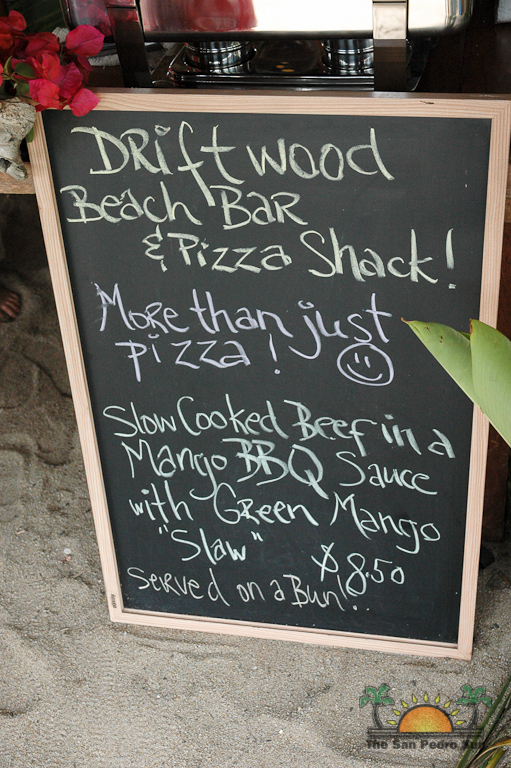 Driftwood
Beach Bar
& Pizza Shack!
More than just
pizza!
Slow Cooked Beef in a
Mango BBQ Sauce
with Green Mango
"Slaw"
$8.50
Served on a Bun!..
The San Pedro Sun